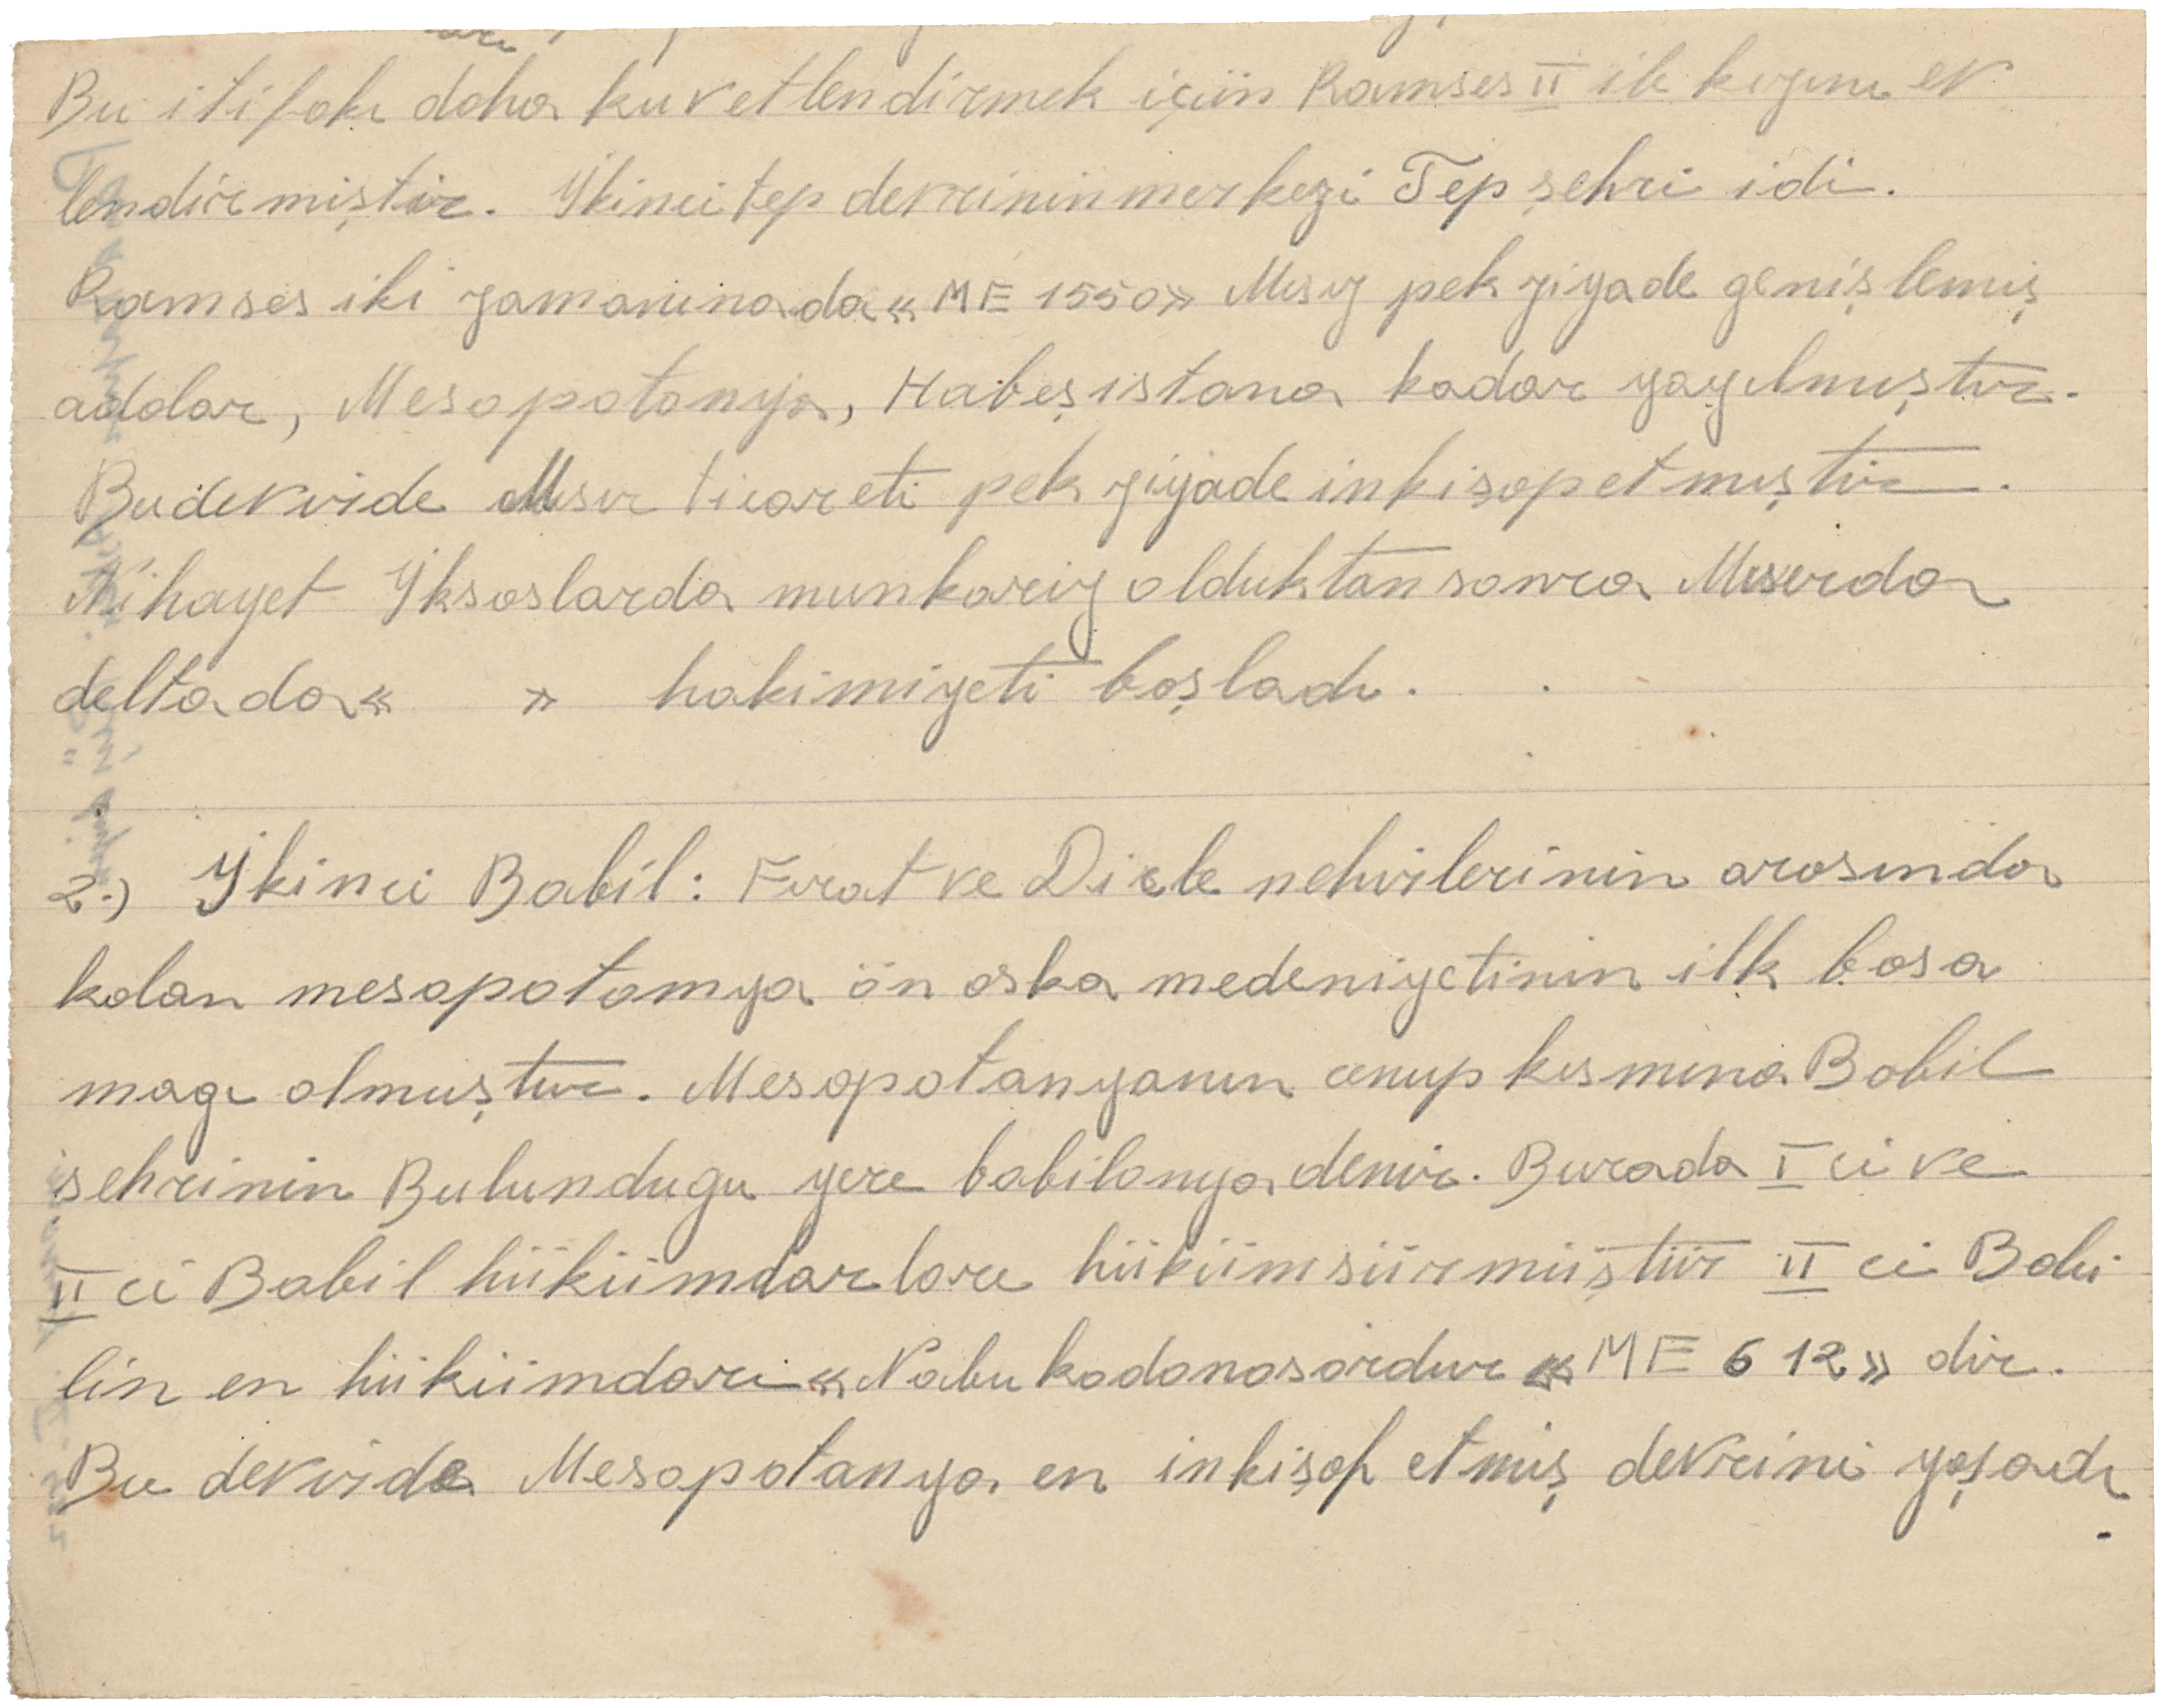 Bu itifakı daha kuvetlendirmek içün Ramses II ile kızını ev
lendirmiştir. İkinci tep devrinin merkezi Tep şehri idi.
Ramses iki zamanınada « ME 1550 » Mısır pek ziyade genişlemiş
adalar, Mesopotanya, Habeşistana kadar yayılmıştır.
Bu devride Mısır ticareti pek ziyade inkişap etmıştir.
Nihayet İksoslarda munkariz olduktan sonra Mısırda
deltada « » hakimiyeti başladı.
2.) İkinci Babil: Fırat ve Dicle nehirlerinin arasında
kalan mesopotamya ön aska medeniyetinin ilk basa
magı olmuştur. Mesopotanyanın cenup kısmına Babil
şehrinin Bulundugu yere babilonya denir. Burada I ci ve
II ci Babil hükümdarları hüküm sürmüştür II ci Babi
lin en hükümdarı « Nabukodonosordur « ME 612 » dir.
Bu devride Mesopotanya en inkişaf etmiş devrini yaşadı.